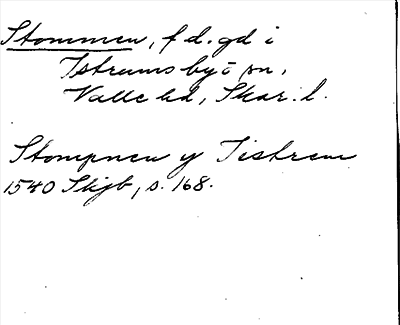 Stommen, f d. gd i
Istrums by o sn,
Valle hd, Skar. l.
Stompnen y Tistrem
1540 Skjb, s. 168.